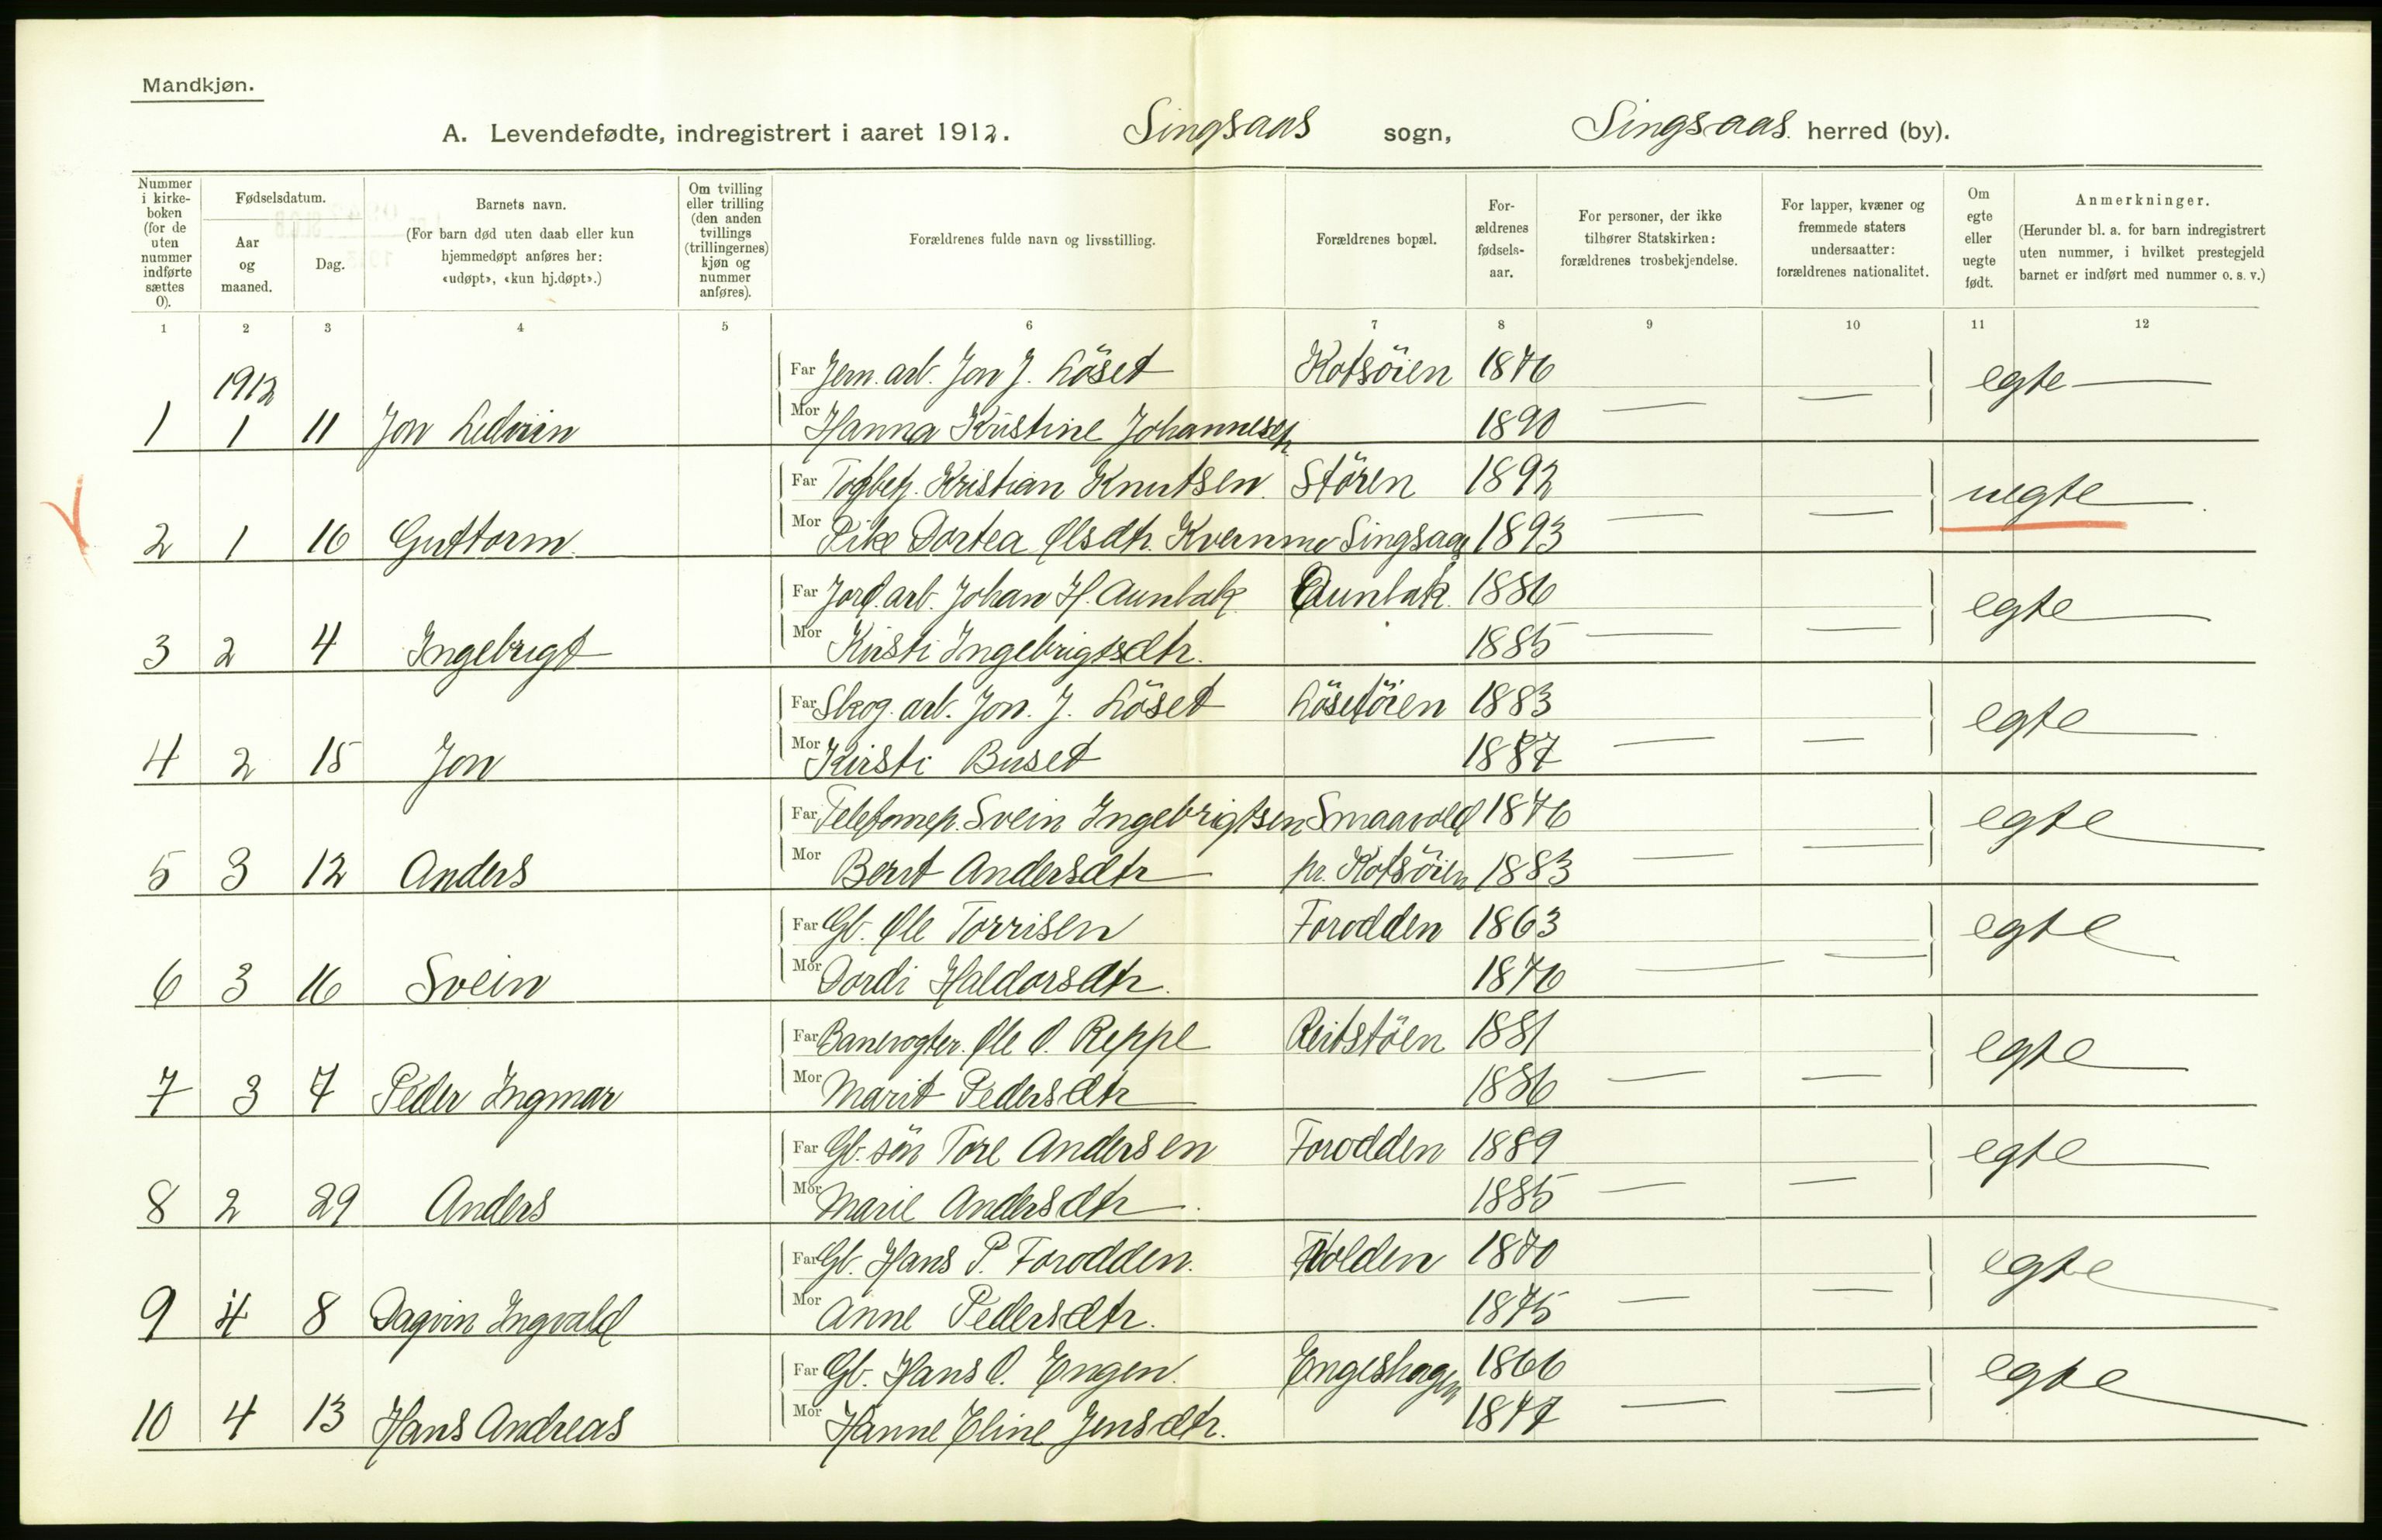 Mandkjøn.
A. Levendefødte, indregistrert i aaret 1912. Singsaas sogn, Singsaas herred (by).
Nummer i kirke- boken (for de uten nummer indførte sættes 0).
Fødselsdatum.
Aar og maaned.
Dag.
Barnets navn.
(For barn død uten daab eller kun hjemmedøpt anføres her: «udøpt», «kun hj.døpt».)
Om tvilling eller trilling (den anden tvillings (trillingernes) kjøn og nummer anføres).
Forældrenes fulde navn og livsstilling.
Forældrenes bopæl.
For- ældrenes fødsels- aar.
For personer, der ikke tilhører Statskirken: forældrenes trosbekjendelse.
For lapper, kvæner og fremmede staters undersaatter: forældrenes nationalitet.
Om egte eller uegte født.
Anmerkninger.
(Herunder bl. a. for barn indregistrert uten nummer, i hvilket prestegjeld barnet er indført med nummer o. s. v.)
1 2 3 4 5 6 7 8 9 10 11 12
1912
Far Jern. arb. Jon J. Löset Kotsöien 1876 egte
1 1 11 Jon Ledvin Mor Hanna Kristine Johannesen 1890
Far Togbetj. Kristian Knutsen. Stören 1892 uegte
2 1 16 Guttorm. Mor Pike Dortea Olsdtr. Kvernmo Singsaas 1893
Far Jord. arb. Johan H. Aunbak Aunbak. 1886 egte
3 2 4 Ingebrigt Mor Kirsti Ingebrigtsdtr. 1885
Far Skog. arb. Jon. J. Löset Lösetöien 1883 egte
4 2 15 Jon Mor Kirsti Buset 1887
Far Telefonrep. Svein Ingebrigtsen Smaavold 1876 egte
5 3 12 Anders Mor Berit Andersdtr pr. Kotsöien 1883
Far Gb. Ole Torrisen Forodden 1863 egte
6 3 16 Svein Mor Dordi Haldorsdtr. 1876
Far Banevogter. Ole O. Reppe Reitstöen 1881 egte
7 3 7 Peder Ingmar Mor Marit Pedersdtr 1886
Far Gb. sön Tore Andersen Forodden 1889 egte
8 2 29 Anders Mor Marie Andersdtr. 1885
Far Gb. Hans P. Forodden. Folden 1870 egte
9 4 8 Dagvin Ingvald Mor Anne Pedersdtr. 1875
Far Gb. Hans O. Engen. Engeshagen 1866 egte
10 4 13 Hans Andreas Mor Hanne Eline Jensdtr. 1877